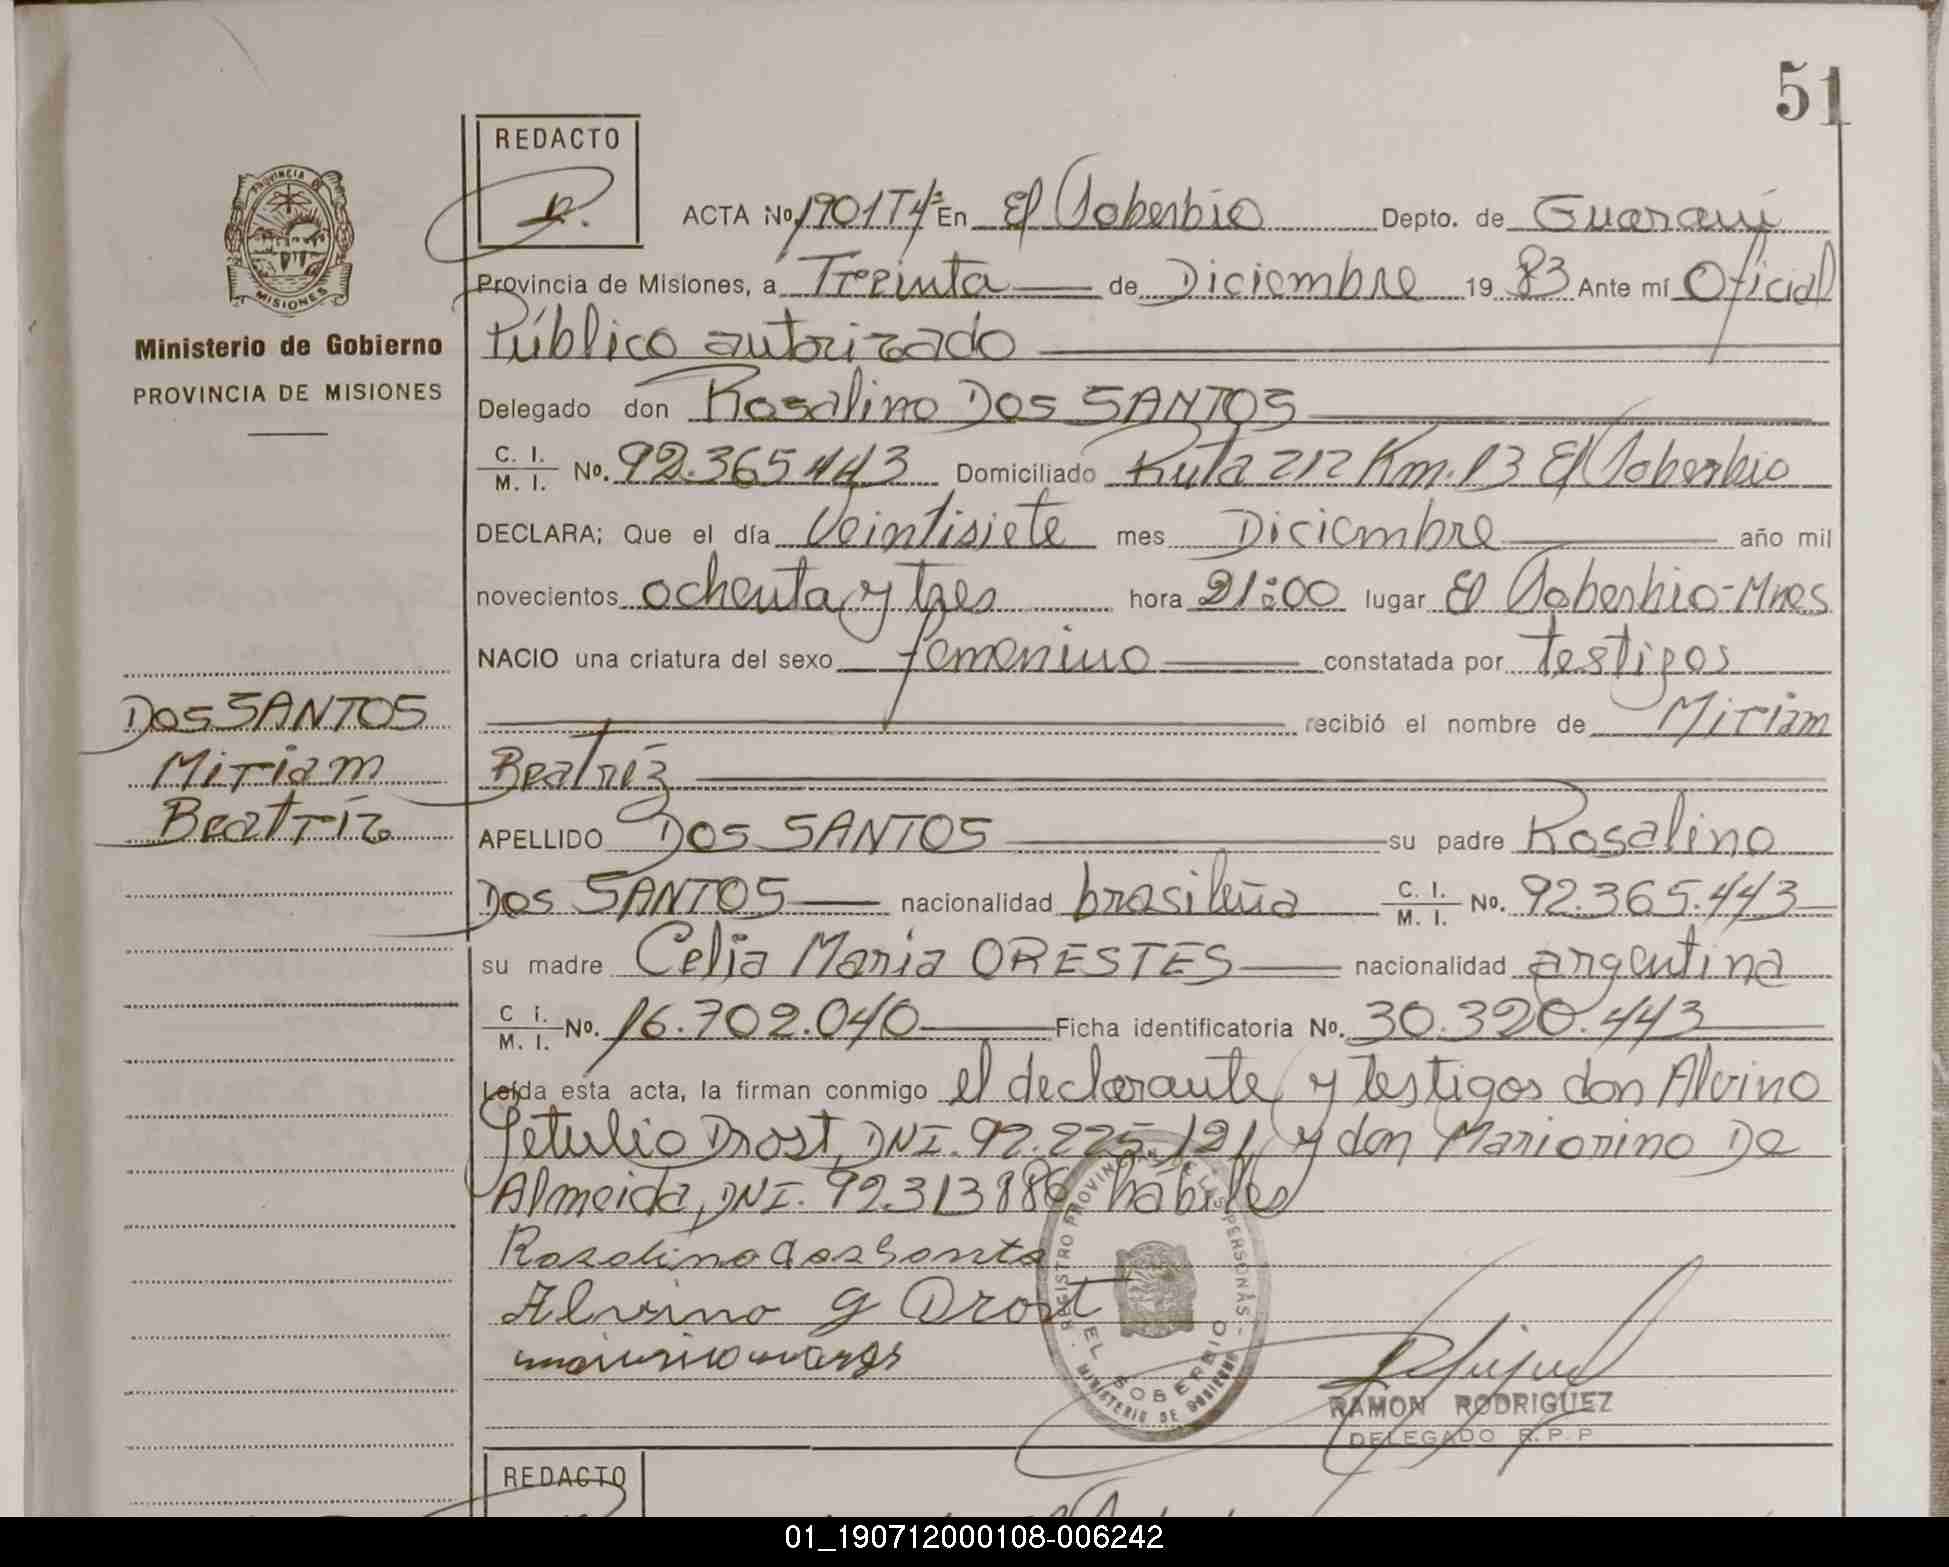 51
REDACTO
PROVINCIA DE
MISIONES
Ministerio de Gobierno
PROVINCIA DE MISIONES
ACTA No. 1901T4ª En El Soberbio Depto. de Guaraní
Provincia de Misiones, a Treinta de Diciembre 19 83 Ante mí Oficial
Público autorizado
Delegado don Rosalino DOS SANTOS
C. I. M. I. No. 92.365.443 Domiciliado Ruta 212 Km. 13 El Soberbio
DECLARA; Que el día Veintisiete mes Diciembre año mil
novecientos ochenta y tres hora 21:00 lugar El Soberbio-Mnes
NACIO una criatura del sexo femenino constatada por testigos
recibió el nombre de Miriam
Beatríz
DOS SANTOS
Miriam
Beatríz
APELLIDO DOS SANTOS su padre Rosalino
DOS SANTOS nacionalidad brasileña C. I. M. I. No. 92.365.443
su madre Celia Maria ORESTES nacionalidad argentina
C I. M. I. No. 16.702.040 Ficha identificatoria No. 30.320.443
Leída esta acta, la firman conmigo el declarante y testigos don Alvino
Getulio Drost, DNI. 92.225.121, y don Mariorino De
Almeida, DNI. 92.313886 habiles
Rosalino dos Santo
Alvino g Drost
REGISTRO PROVINCIAL DE LAS PERSONAS
EL SOBERBIO
MINISTERIO DE GOBIERNO
RAMON RODRIGUEZ
DELEGADO R.P.P
REDACTO
01_190712000108-006242